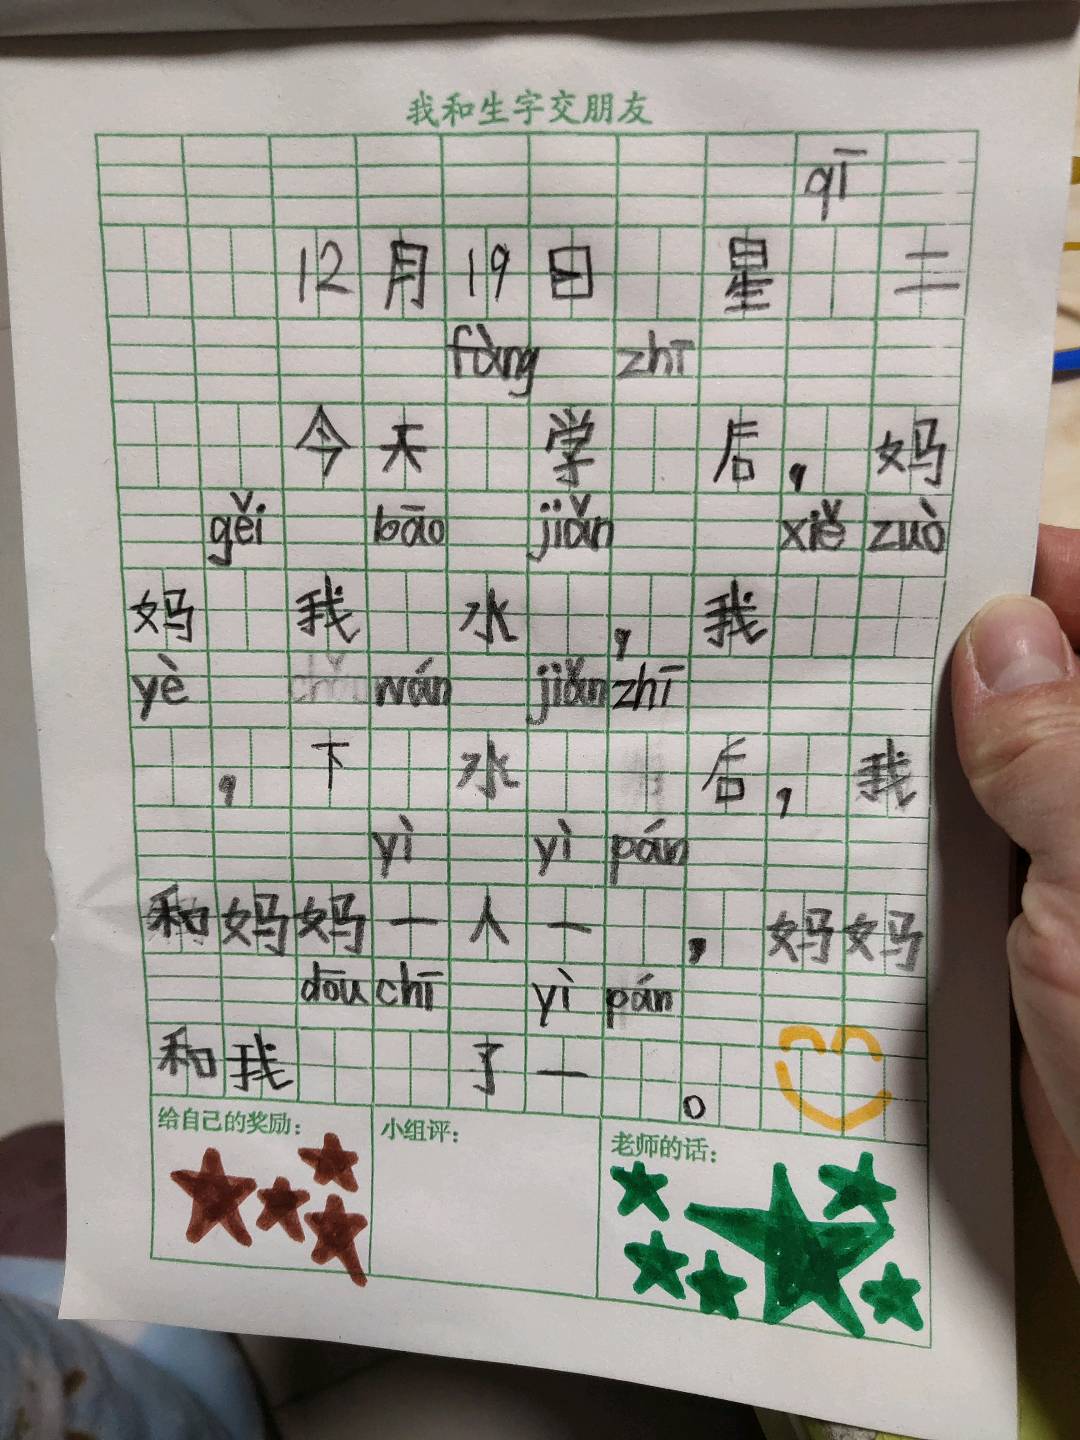 我和生字交朋友
qī
12月19日 星 二
fàng zhī
今天 学 后，妈
gěi bāo jiǎn xiě zuò
妈 我 水 ，我
yè wán jiǎn zhī
，下 水 后，我
yì yì pán
和妈妈一人一 ，妈妈
dōu chī yì pán
和我 了一 。
给自己的奖励：
小组评：
老师的话：